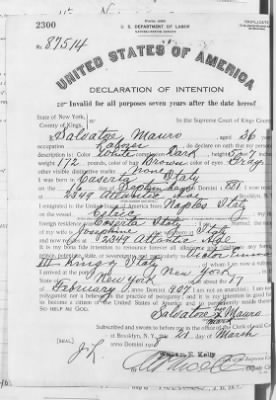 2300
U. S. DEPARTMENT OF LABOR
NATURALIZATION SERVICE
No. 87514
UNITED STATES OF AMERICA
DECLARATION OF INTENTION
Invalid for all purposes seven years after the date hereof
State of New York,
County of Kings,
In the Supreme Court of Kings County.
I, Salvatore Mauro, aged 36 years,
occupation Laborer, do declare on oath that my personal
description is: Color White, complexion Dark, height 5 feet 7 inches,
weight 172 pounds, color of hair Brown, color of eyes Gray
other visible distinctive marks None
I was born in Caserta Italy
on the 16 day of September, anno Domini 1881; I now reside
at 2349 Atlantic Ave
I emigrated to the United States of America from Naples Italy
on the vessel Celtic; my last
foreign residence was Caserta Italy
of my wife is Josephine Italy
and now resides at 2349 Atlantic Ave
It is my bona fide intention to renounce forever all allegiance and fidelity to any foreign
prince, potentate, state, or sovereignty, and particularly to Victor Emmanuel
III King of Italy
I arrived at the port of New York
New York, on or about the 17 day
February, anno Domini 1907; I am not an anarchist; I am not a
polygamist nor a believer in the practice of polygamy; and it is my intention in good faith
to become a citizen of the United States of America and to permanently reside therein:
SO HELP ME GOD.
Salvatore Mauro
Subscribed and sworn to before me in the office of the Clerk of said Court
at Brooklyn, N. Y., this 21 day of March
anno Domini 191
[SEAL]
Kelly